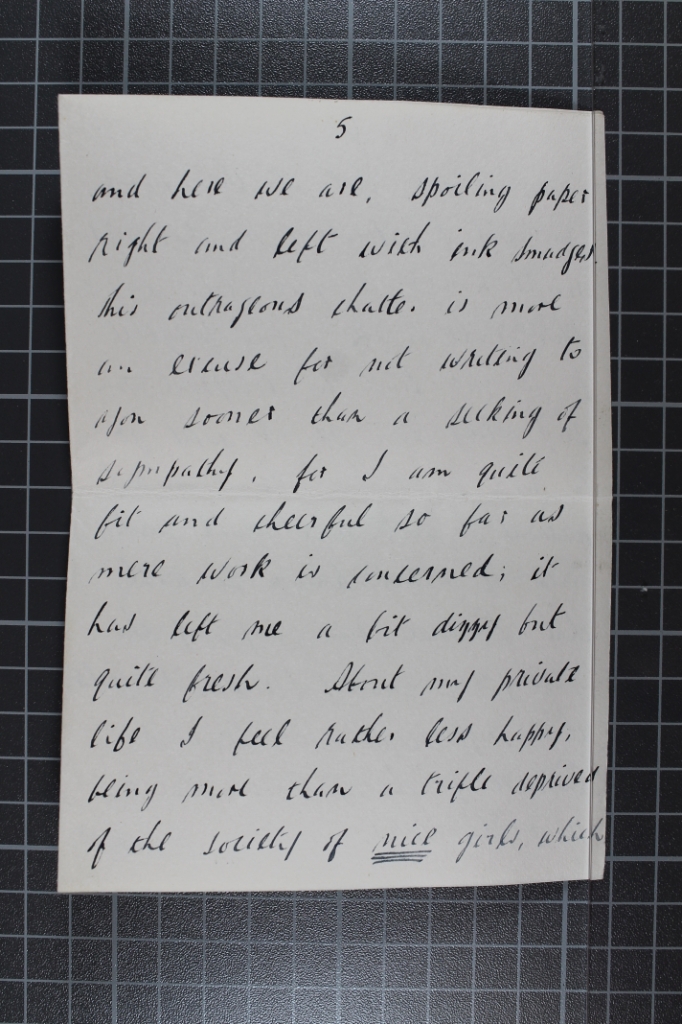 5
and here we are, spoiling paper
right and left with ink smudges.
this outrageous chatter is more
an excuse for not writing to
you sooner than a seeking of
sympathy, for I am quite
fit and cheerful so far as
mere work is concerned; it
has left me a bit dizzy but
quite fresh. About my private
life I feel rather less happy,
being more than a trifle deprived
of the society of nice girls, which